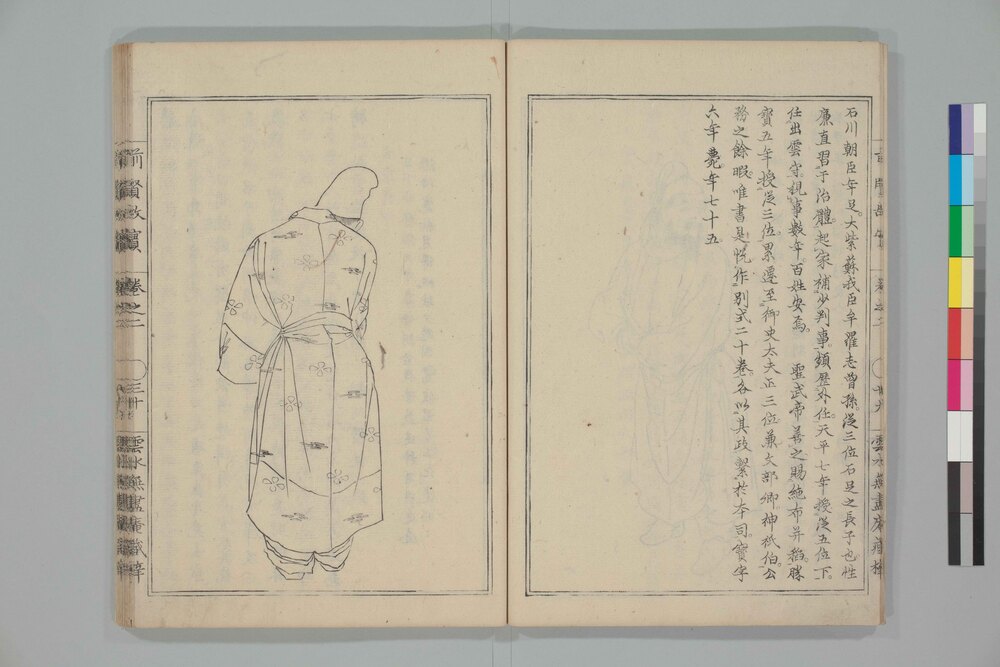 石川朝臣年足大紫蘇我臣牟羅志曽孫從三位石足之長子也性
廉直習于治體起家補少判事頻歷外任天平七年授從五位下
任出雲守視事數年百姓安焉 聖武帝善之賜絁布并稻勝
寶五年授從三位累遷至御史大夫正三位兼文部卿神祇伯公
務之餘暇唯書是悅作別式二十卷各以其政繫於本司寶字
六年薨年七十五
前賢故實 卷之二 三十 雲水無盡庵藏梓
卷之二 廿九 雲水無盡庵藏梓